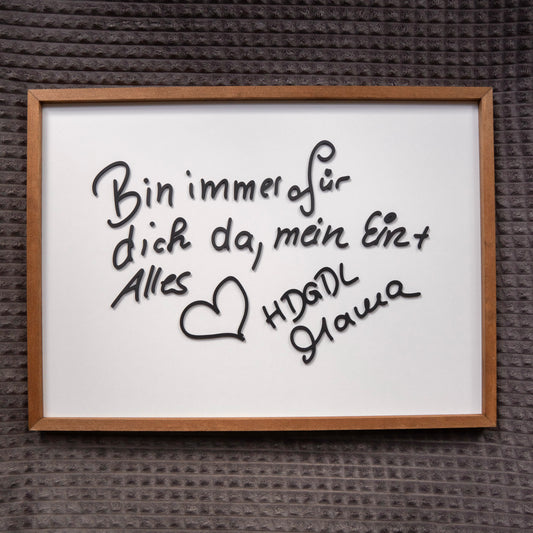 Bin immer für
dich da, mein Ein +
Alles
HDGDL
Mama